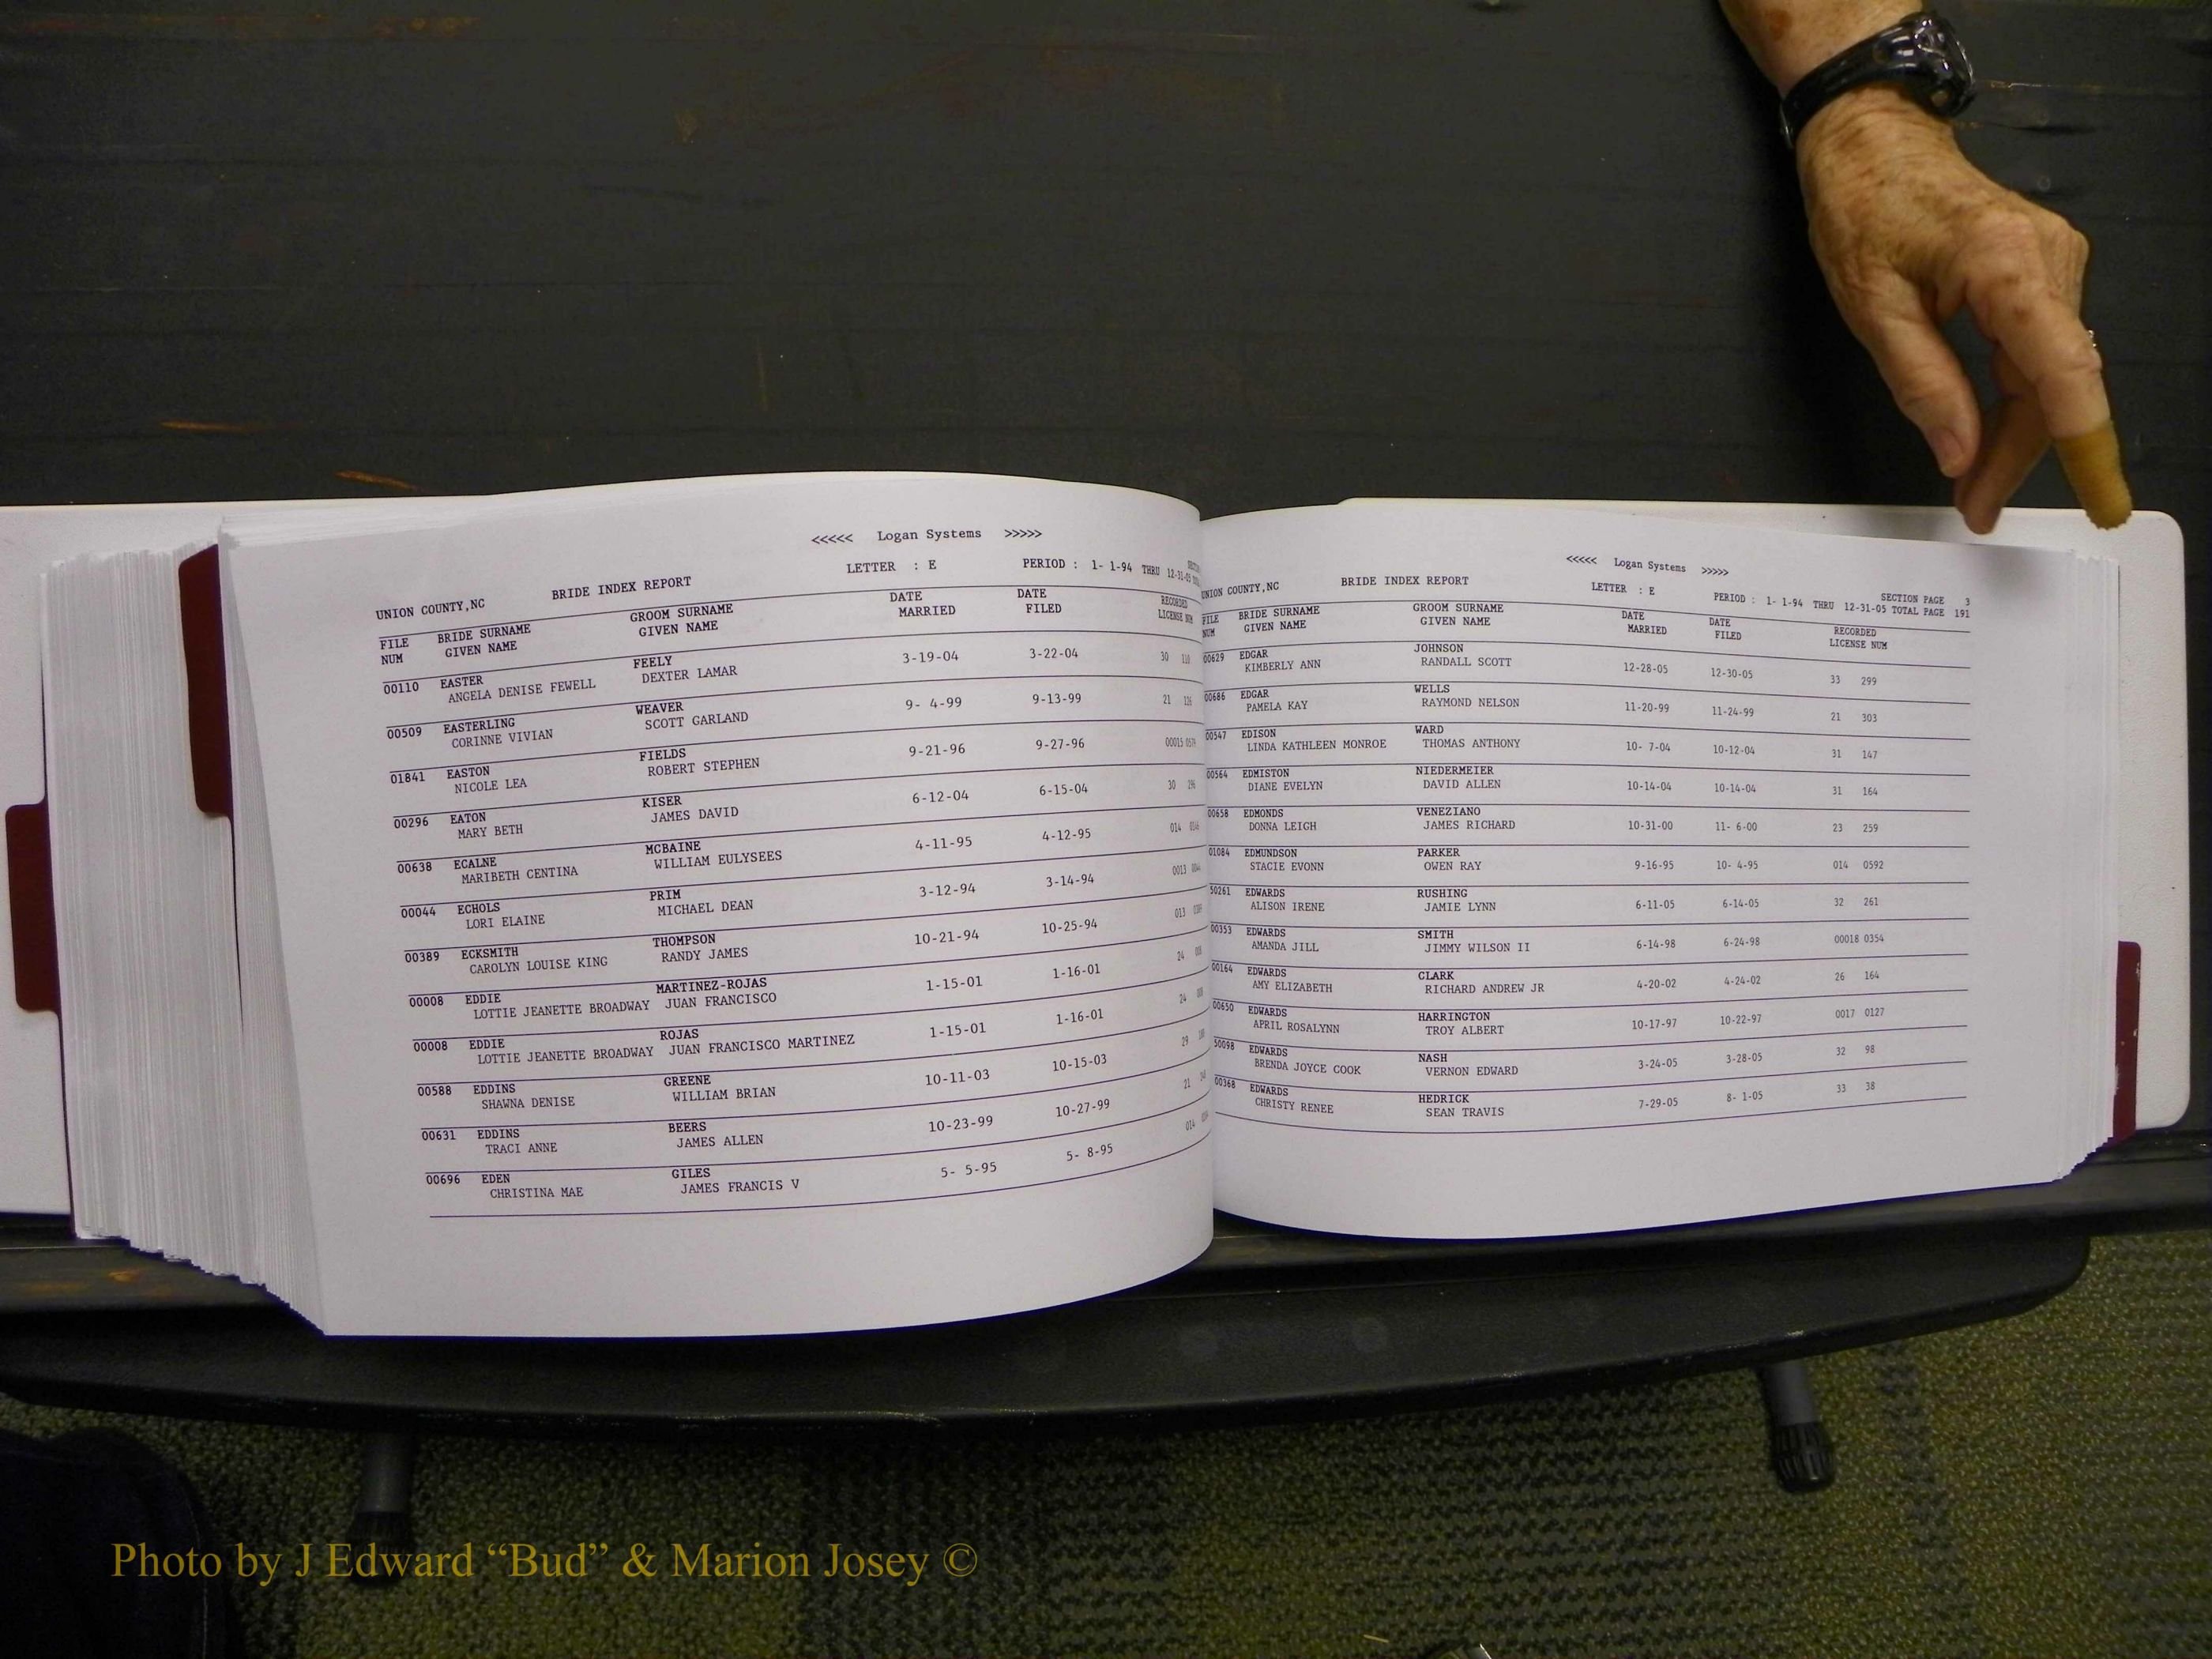 <<<<< Logan Systems >>>>>
UNION COUNTY,NC BRIDE INDEX REPORT LETTER : E PERIOD : 1- 1-94 THRU 12-31-05
FILE BRIDE SURNAME GROOM SURNAME DATE DATE RECORDED
NUM GIVEN NAME GIVEN NAME MARRIED FILED LICENSE NUM
00110 EASTER FEELY 3-19-04 3-22-04 30
ANGELA DENISE FEWELL DEXTER LAMAR
00509 EASTERLING WEAVER 9- 4-99 9-13-99 21
CORINNE VIVIAN SCOTT GARLAND
01841 EASTON FIELDS 9-21-96 9-27-96 00015
NICOLE LEA ROBERT STEPHEN
00296 EATON KISER 6-12-04 6-15-04 30
MARY BETH JAMES DAVID
00638 ECALNE MCBAINE 4-11-95 4-12-95 014
MARIBETH CENTINA WILLIAM EULYSEES
00044 ECHOLS PRIM 3-12-94 3-14-94 0013
LORI ELAINE MICHAEL DEAN
00389 ECKSMITH THOMPSON 10-21-94 10-25-94 013
CAROLYN LOUISE KING RANDY JAMES
00008 EDDIE MARTINEZ-ROJAS 1-15-01 1-16-01 24
LOTTIE JEANETTE BROADWAY JUAN FRANCISCO
00008 EDDIE ROJAS 1-15-01 1-16-01 24
LOTTIE JEANETTE BROADWAY JUAN FRANCISCO MARTINEZ
00588 EDDINS GREENE 10-11-03 10-15-03 29
SHAWNA DENISE WILLIAM BRIAN
00631 EDDINS BEERS 10-23-99 10-27-99 21
TRACI ANNE JAMES ALLEN
00696 EDEN GILES 5- 5-95 5- 8-95 014
CHRISTINA MAE JAMES FRANCIS V
<<<<< Logan Systems >>>>>
UNION COUNTY,NC BRIDE INDEX REPORT LETTER : E PERIOD : 1- 1-94 THRU 12-31-05 SECTION PAGE 3
TOTAL PAGE 191
FILE BRIDE SURNAME GROOM SURNAME DATE DATE RECORDED
NUM GIVEN NAME GIVEN NAME MARRIED FILED LICENSE NUM
00629 EDGAR JOHNSON 12-28-05 12-30-05 33 299
KIMBERLY ANN RANDALL SCOTT
00686 EDGAR WELLS 11-20-99 11-24-99 21 303
PAMELA KAY RAYMOND NELSON
00547 EDISON WARD 10- 7-04 10-12-04 31 147
LINDA KATHLEEN MONROE THOMAS ANTHONY
00564 EDMISTON NIEDERMEIER 10-14-04 10-14-04 31 164
DIANE EVELYN DAVID ALLEN
00658 EDMONDS VENEZIANO 10-31-00 11- 6-00 23 259
DONNA LEIGH JAMES RICHARD
01084 EDMUNDSON PARKER 9-16-95 10- 4-95 014 0592
STACIE EVONN OWEN RAY
50261 EDWARDS RUSHING 6-11-05 6-14-05 32 261
ALISON IRENE JAMIE LYNN
00353 EDWARDS SMITH 6-14-98 6-24-98 00018 0354
AMANDA JILL JIMMY WILSON II
00164 EDWARDS CLARK 4-20-02 4-24-02 26 164
AMY ELIZABETH RICHARD ANDREW JR
00650 EDWARDS HARRINGTON 10-17-97 10-22-97 0017 0127
APRIL ROSALYNN TROY ALBERT
50098 EDWARDS NASH 3-24-05 3-28-05 32 98
BRENDA JOYCE COOK VERNON EDWARD
00368 EDWARDS HEDRICK 7-29-05 8- 1-05 33 38
CHRISTY RENEE SEAN TRAVIS
Photo by J Edward “Bud” & Marion Josey ©